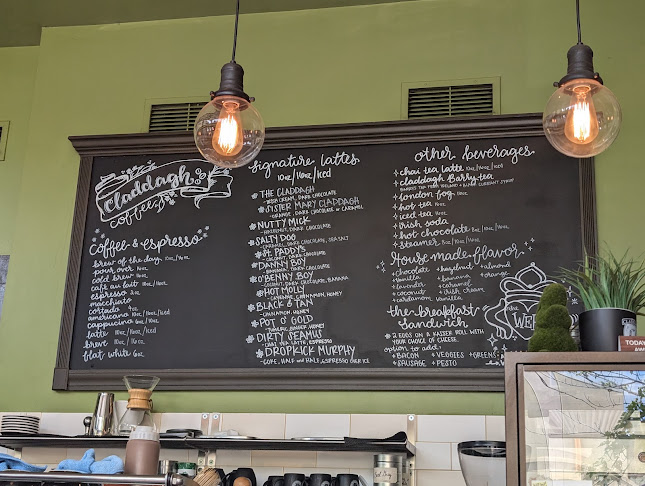 Claddagh
coffee
coffee & espresso
brew of the day 10oz/16oz
pour over 16oz
cold brew 16oz
café au lait 10oz/16oz
espresso 2oz
macchiato
cortado 4oz
americano 10oz/16oz/iced
cappuccino 6oz
latte 10oz/16oz/iced
breve 10oz/16oz
flat white 6oz
signature lattes
10oz/16oz/iced
THE CLADDAGH
IRISH CREAM, DARK CHOCOLATE
SISTER MARY CLADDAGH
ORANGE, DARK CHOCOLATE & CARAMEL
NUTTY MICK
HAZELNUT, DARK CHOCOLATE
SALTY DOG
CARAMEL, DARK CHOCOLATE, SEA SALT
ST. PADDY'S
DANNY BOY
BANANA, DARK CHOCOLATE
O'BENNY BOY
COCONUT, DARK CHOCOLATE, BANANA
HOT MOLLY
CAYENNE, CINNAMON, HONEY
BLACK & TAN
CINNAMON, HONEY
POT O' GOLD
TUMERIC, GINGER, HONEY
DIRTY SEAMUS
CHAI TEA LATTE, ESPRESSO
DROPKICK MURPHY
COKE, HALF AND HALF, ESPRESSO OVER ICE
other beverages
+ chai tea latte 10oz/16oz/iced
+ claddagh Barry tea
BARRY'S TEA FROM IRELAND + BLACK CURRANT SYRUP
+ london fog
+ hot tea 16oz
+ iced tea 16oz
+ irish soda
+ hot chocolate 8oz/10oz/16oz
+ steamer 8oz/10oz/16oz
House made flavor
+ chocolate + hazelnut + almond
+ vanilla + banana + orange
+ lavender + caramel
+ coconut + irish cream
+ cardamom vanilla
the breakfast
sandwich
2 EGGS ON A KAISER ROLL WITH
YOUR CHOICE OF CHEESE.
option to add:
+ BACON + VEGGIES + GREENS
+ SAUSAGE + PESTO
TODAY